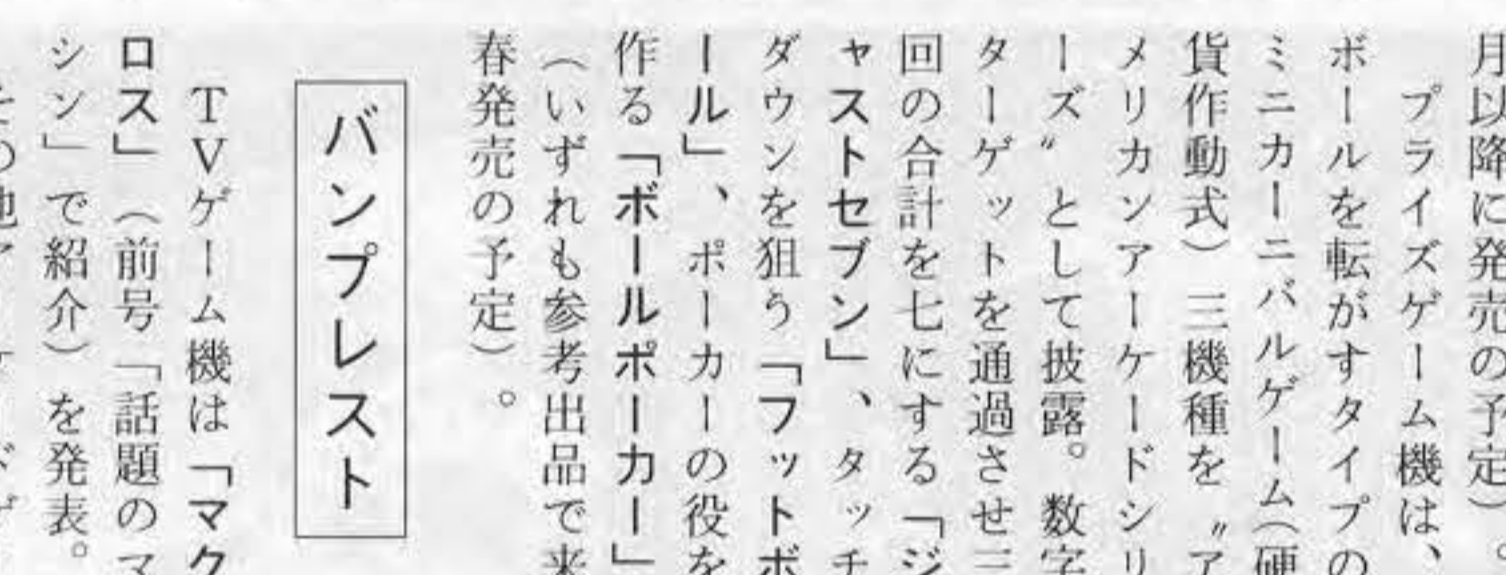 月以降に発売の予定）。
プライズゲーム機は、
ボールを転がすタイプの
ミニカーニバルゲーム（硬
貨作動式）三機種を〝ア
メリカンアーケードシリ
ーズ〟として披露。数字
ターゲットを通過させ三
回の合計を七にする「ジ
ャストセブン」、タッチ
ダウンを狙う「フットボ
ール」、ポーカーの役を
作る「ボールポーカー」
（いずれも参考出品で来
春発売の予定）。
バンプレスト
TVゲーム機は「マク
ロス」（前号「話題のマ
シン」で紹介）を発表。